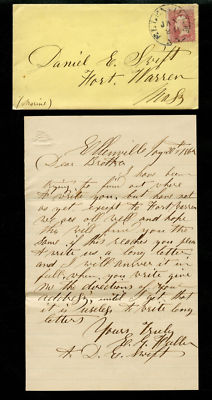 ELLENVILLE
Daniel E. Swift
Fort. Warren
(Marine)
Mass
Ellenville Jany 20th 186
Dear Brother
I have been
trying to find out where
to write you, but have not
as yet except to Fort Warren
we are all well and hope
this will find you the
same if this reaches you
write us a long letter
and I will answer it in
full, when you write give
me the directions of your
address, until I get that
it is useless to write long
letters
Yours, Truly
E. G. Fuller
D. E. Swift